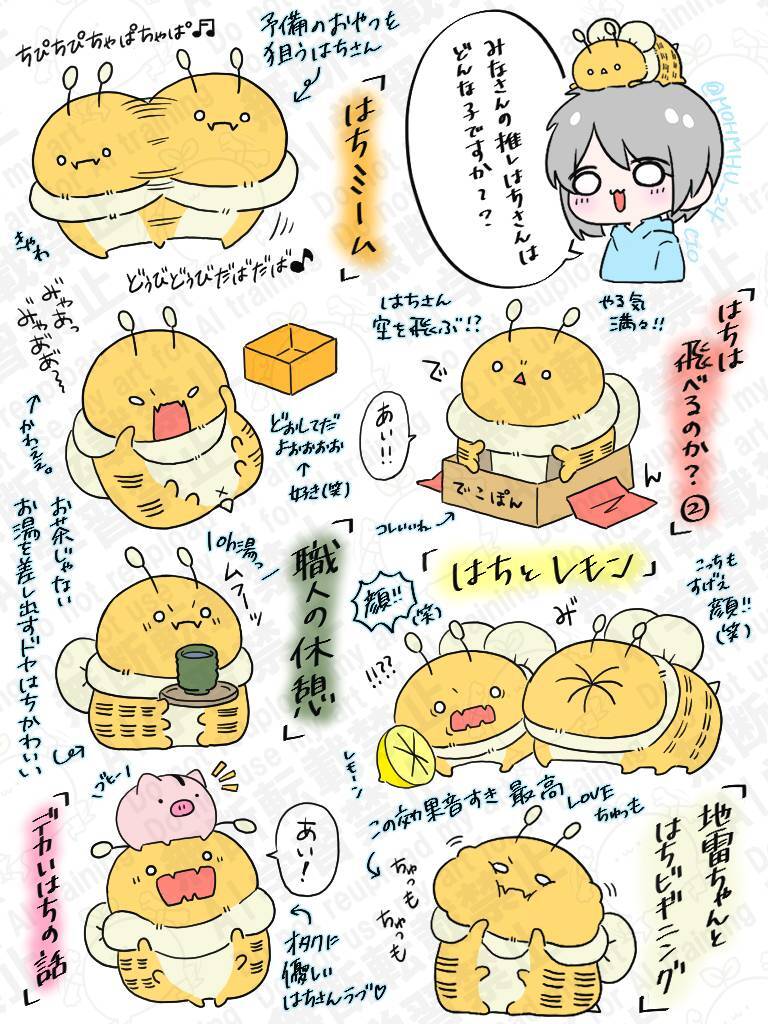 みなさんの推しはちさんは
どんな子ですか??
@MOHMHU_24
CIO
予備のおやつを
狙うはちさん
ちぴちぴちゃぱちゃぱ♫
「はちミーム」
きゃわ
どぅびどぅびだばだば♪
「はちは
飛べるのか?②」
はちさん
空を飛ぶ!?
やる気
満々!!
で
あい!!
ん
でこぽん
コレいいね
みゃあっ
みゃあぁ〜〜
かわえぇ。
どおしてだ
よおおおお
好き(笑)
「はちとレモン」
こっちも
すげえ
顔!!
(笑)
顔!!
(笑)
み゛
!!??
レモーン
「職人の休憩」
10h湯っ
ムフーッ
お茶じゃない
お湯を差し出すドヤはちかわいい
「地雷ちゃんと
はちビギニング」
この効果音すき 最高
LOVE
ちゃっも
ちゃっも
ちゃっも
「デカいはちの話」
プヒー!
あい!
オタクに
優しい
はちさんラブ♡